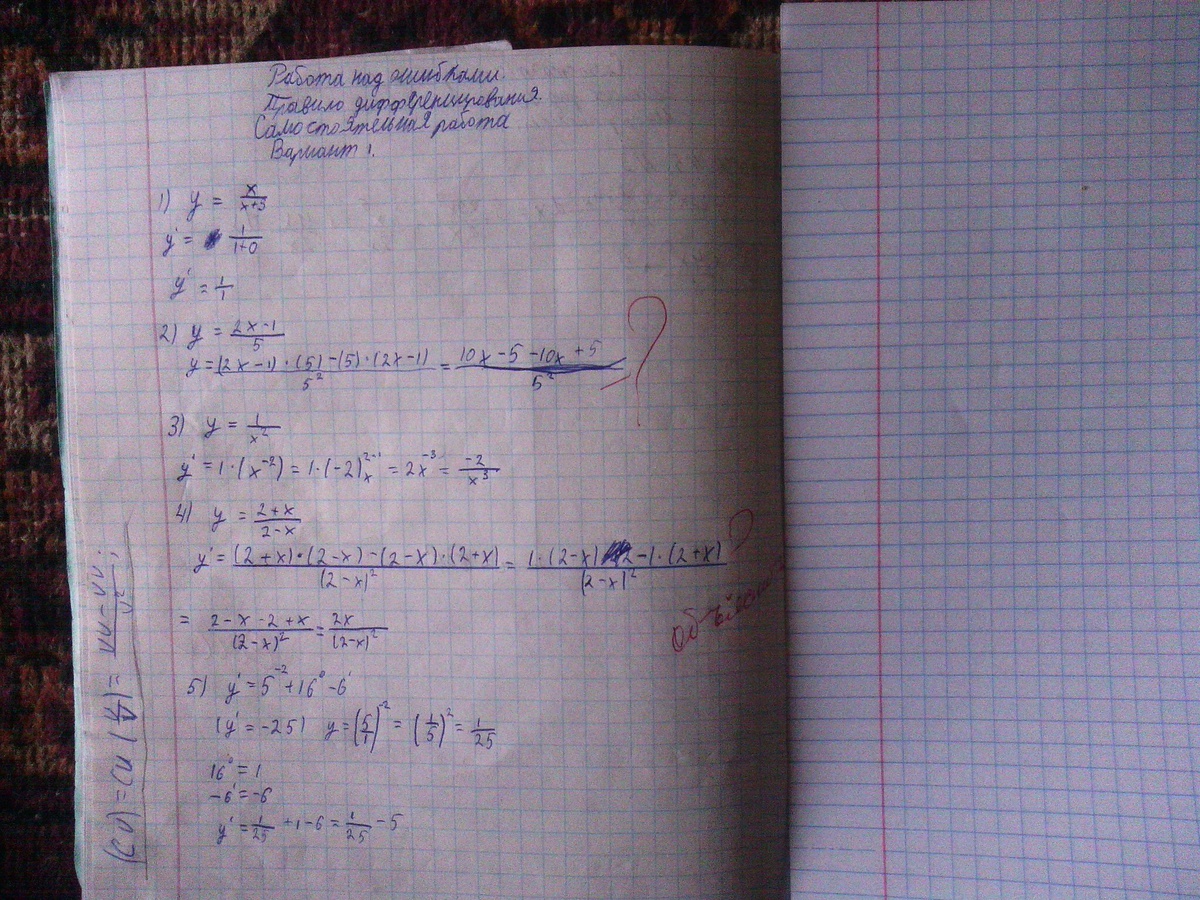 Работа над ошибками.
Правило дифференцирования.
Самостоятельная работа
Вариант 1.
1) y = x/(x+3)
y' = 1/(1+0)
y' = 1/1
2) y = (2x-1)/5
y = ((2x-1)·(5)-(5)·(2x-1))/5² = (10x-5-10x+5)/5²
?
3) y = 1/x²
y' = 1·(x⁻²) = 1·(-2)x²⁻¹ = 2x⁻³ = -2/x³
4) y = (2+x)/(2-x)
y' = ((2+x)·(2-x)-(2-x)·(2+x))/(2-x)² = (1·(2-x) 2-1·(2+x))/(2-x)² ?
= (2-x-2+x)/(2-x)² = 2x/(2-x)²
5) y' = 5⁻²+16⁰-6'
(y' = -25) y = (5/1)⁻² = (1/5)² = 1/25
16⁰ = 1
-6' = -6
y' = 1/25 +1-6 = 1/25 -5